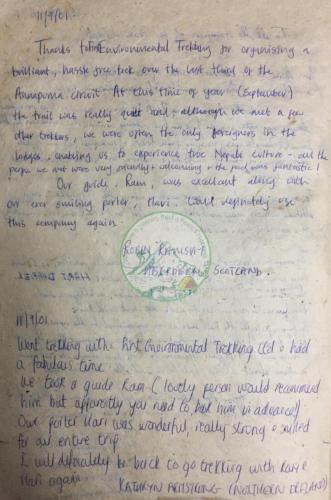 11/9/01.
Thanks to First Environmental Trekking for organising a
brilliant, hassle free trek over the last third of the
Annapurna circuit. At this time of year (September)
the trail was really quiet and, although we met a few
other trekkers, we were often the only foreigners in the
lodges, enabling us to experience true Nepali culture - and the
people we met were very friendly + welcoming + the food was fantastic!
Our guide, Ram, was excellent along with
our ever smiling porter, Hari. Would definitely use
this company again.
ROBIN
ABERDEEN, SCOTLAND.
11/9/01
Went trekking with First Environmental Trekking Ltd & had
a fabulous time.
We took a guide Ram (lovely person would recommend
him but apparently you need to book him in advance)
Our porter Hari was wonderful, really strong & smiled
for our entire trip.
I will definitely be back to go trekking with Ram &
Hari again.
KATHRYN ARMSTRONG (NORTHERN IRELAND)